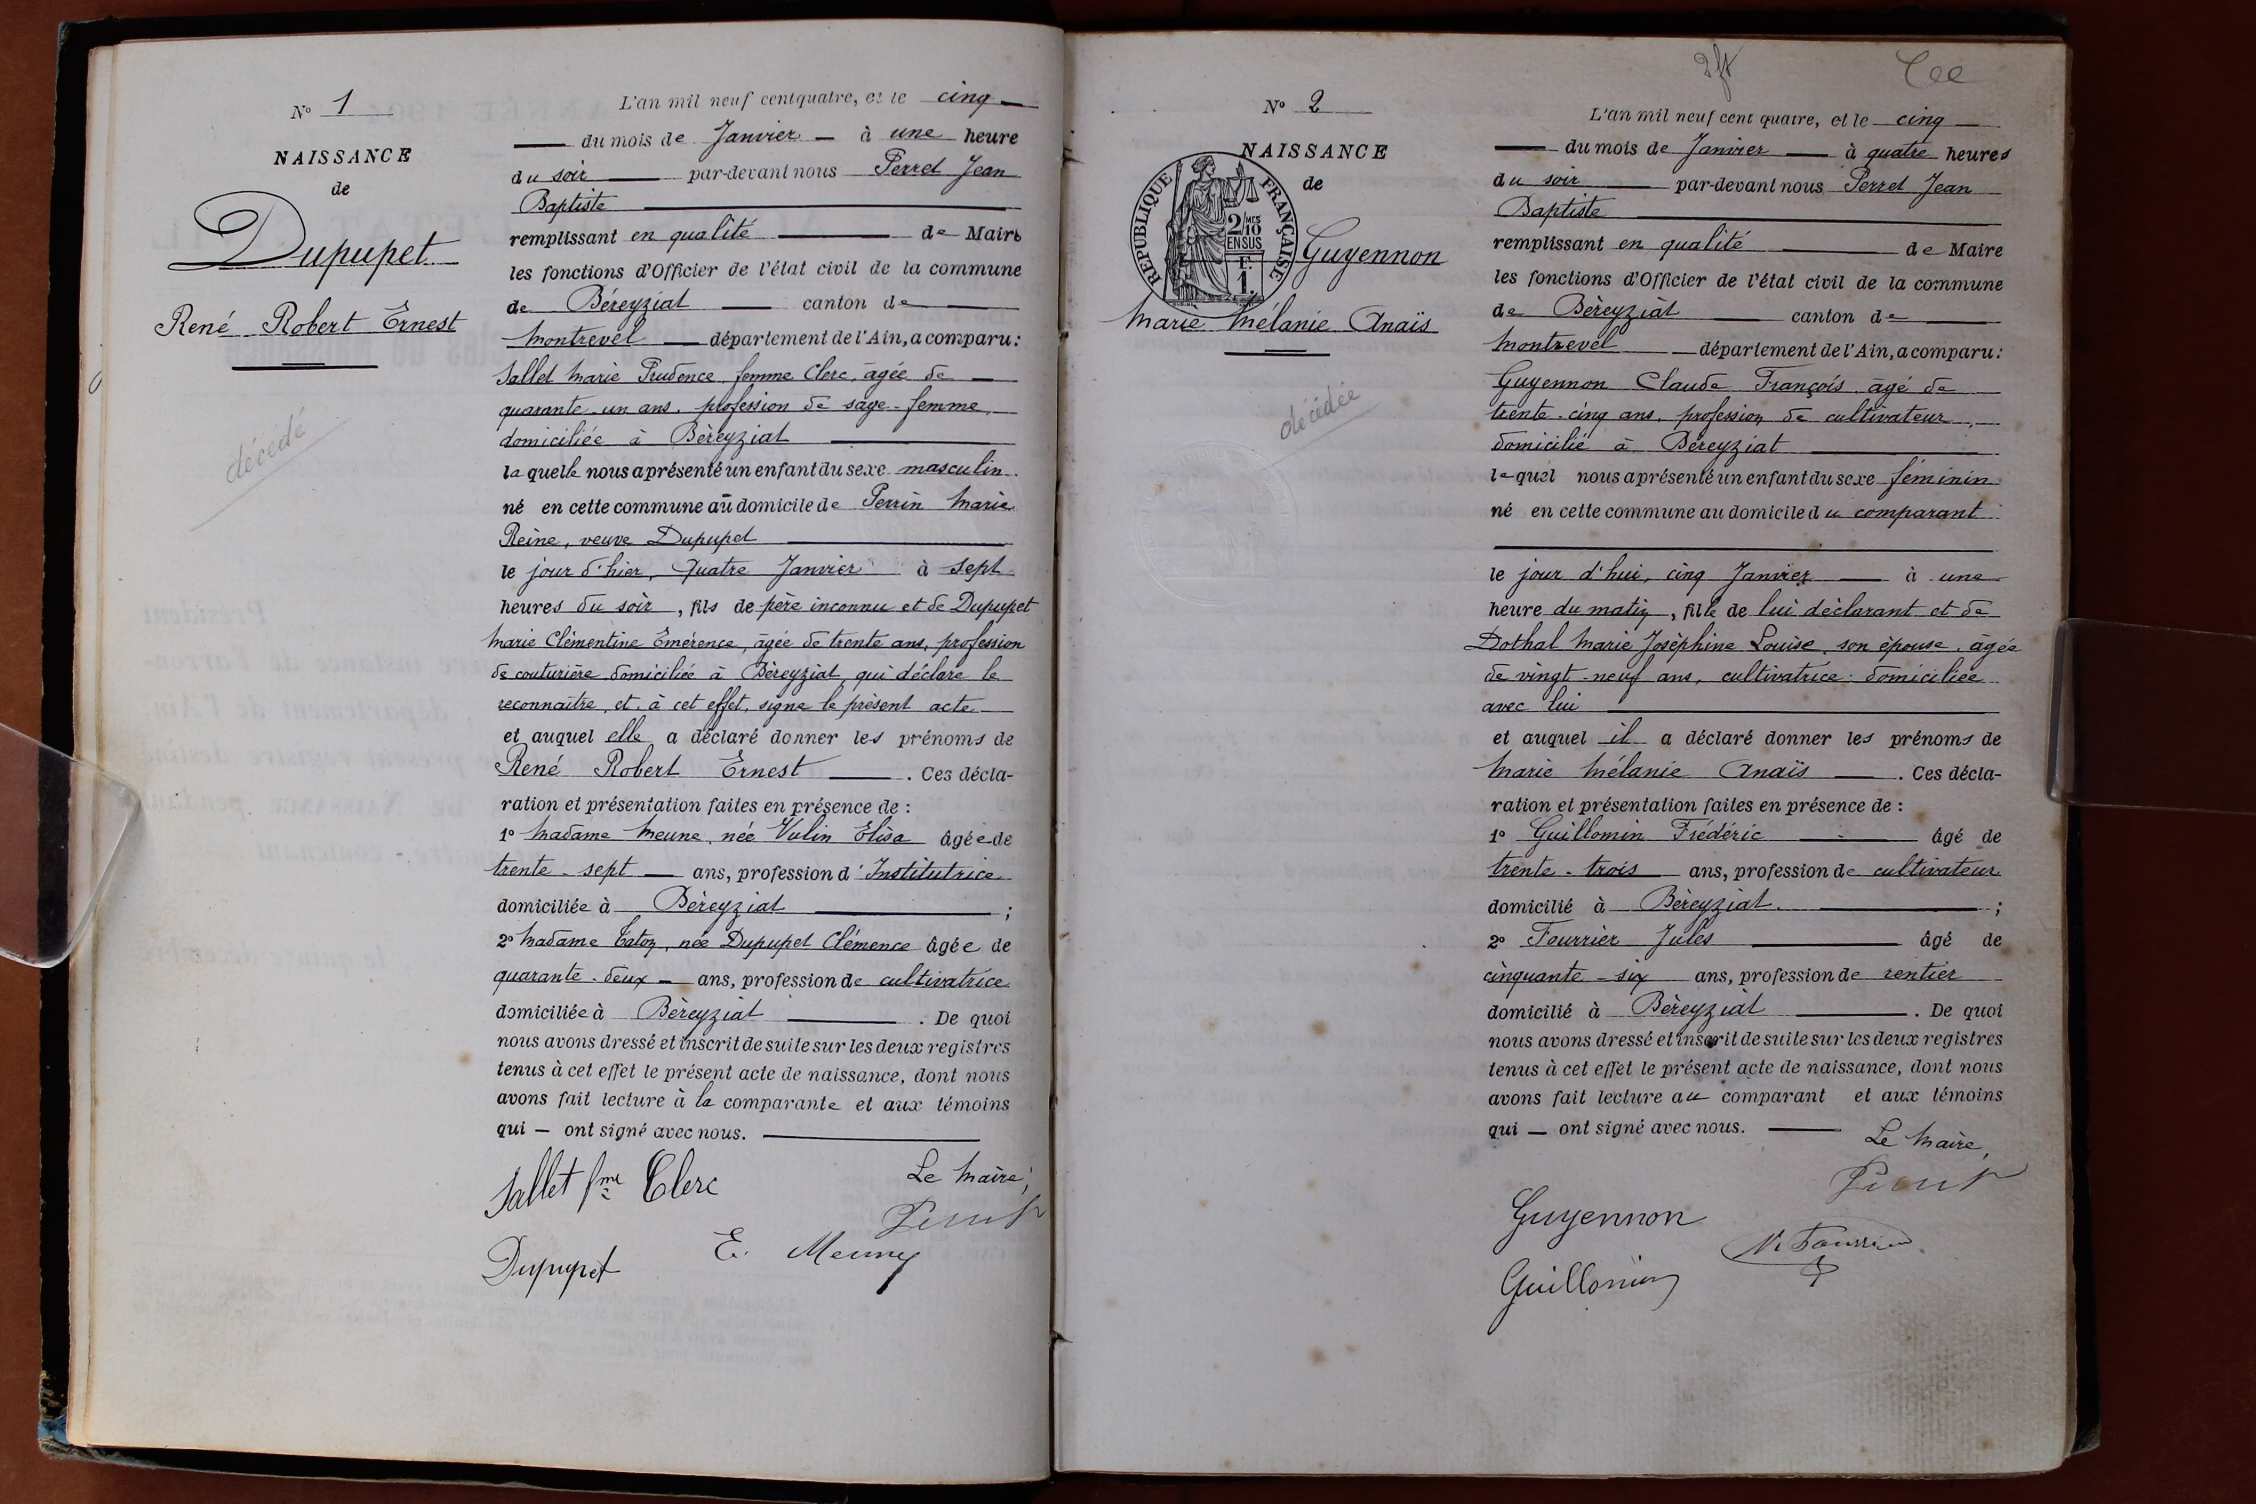 N° 1
NAISSANCE
de
Dupupet
René Robert Ernest
décédé
L'an mil neuf cent quatre, et le cinq
du mois de Janvier à une heure
du soir par-devant nous Perret Jean
Baptiste
remplissant en qualité de Maire
les fonctions d'Officier de l'état civil de la commune
de Béreyziat canton de
Montrevel département de l'Ain, a comparu :
Sallet Marie Prudence, femme Clerc, âgée de
quarante-un ans, profession de sage-femme,
domiciliée à Béreyziat
laquelle nous a présenté un enfant du sexe masculin
né en cette commune au domicile de Perrin Marie
Reine, veuve Dupupet
le jour d'hier, quatre Janvier à sept
heures du soir, fils de père inconnu et de Dupupet
Marie Clémentine Emérence, âgée de trente ans, profession
de couturière, domiciliée à Béreyziat, qui déclare le
reconnaître, et, à cet effet, signe le présent acte
et auquel elle a déclaré donner les prénoms de
René Robert Ernest . Ces décla-
ration et présentation faites en présence de :
1° Madame Meune, née Vulin Elisa âgée de
trente-sept ans, profession d'Institutrice
domiciliée à Béreyziat ;
2° Madame Caton, née Dupupet Clémence âgée de
quarante-deux ans, profession de cultivatrice
domiciliée à Béreyziat . De quoi
nous avons dressé et inscrit de suite sur les deux registres
tenus à cet effet le présent acte de naissance, dont nous
avons fait lecture à la comparante et aux témoins
qui ont signé avec nous.
Sallet fme Clerc
Le Maire,
Perret
Dupupet
E. Meune
N° 2
NAISSANCE
de
REPUBLIQUE FRANÇAISE
2/10 MES
EN SUS
F.
1.
Guyennon
Marie Mélanie Anaïs
décédée
L'an mil neuf cent quatre, et le cinq
du mois de Janvier à quatre heures
du soir par-devant nous Perret Jean
Baptiste
remplissant en qualité de Maire
les fonctions d'Officier de l'état civil de la commune
de Béreyziat canton de
Montrevel département de l'Ain, a comparu :
Guyennon Claude François âgé de
trente-cinq ans, profession de cultivateur,
domicilié à Béreyziat
lequel nous a présenté un enfant du sexe féminin
né en cette commune au domicile du comparant
le jour d'hui, cinq Janvier à une
heure du matin, fille de lui déclarant et de
Dothal Marie Joséphine Louise, son épouse, âgée
de vingt-neuf ans, cultivatrice domiciliée
avec lui
et auquel il a déclaré donner les prénoms de
Marie Mélanie Anaïs . Ces décla-
ration et présentation faites en présence de :
1° Guillomin Frédéric âgé de
trente-trois ans, profession de cultivateur
domicilié à Béreyziat ;
2° Fourrier Jules âgé de
cinquante-six ans, profession de rentier
domicilié à Béreyziat . De quoi
nous avons dressé et inscrit de suite sur les deux registres
tenus à cet effet le présent acte de naissance, dont nous
avons fait lecture au comparant et aux témoins
qui ont signé avec nous.
Le Maire,
Perret
Guyennon
Fourrier
Guillomin